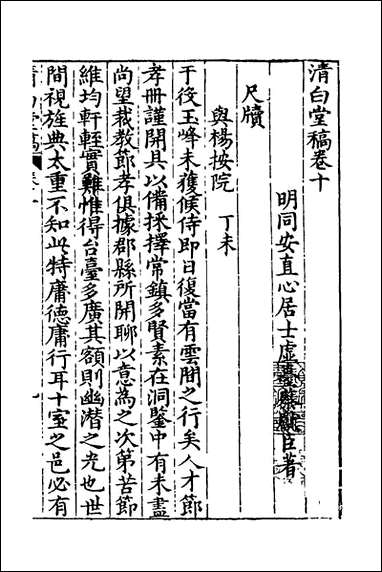 清白堂稿卷十
明同安直心居士虛臺蔡獻臣著
尺牘
與楊按院 丁未
于役玉峰未獲候侍即日復當有雲間之行矣人才節
孝冊謹開具以備採擇常鎮多賢素在洞鑒中有未盡
尚望裁教節孝俱據郡縣所開聊以意為之次第苦節
維均軒輊實難惟得台臺多廣其額則幽潛之光也世
間視旌典太重不知此特庸德庸行耳十室之邑必有